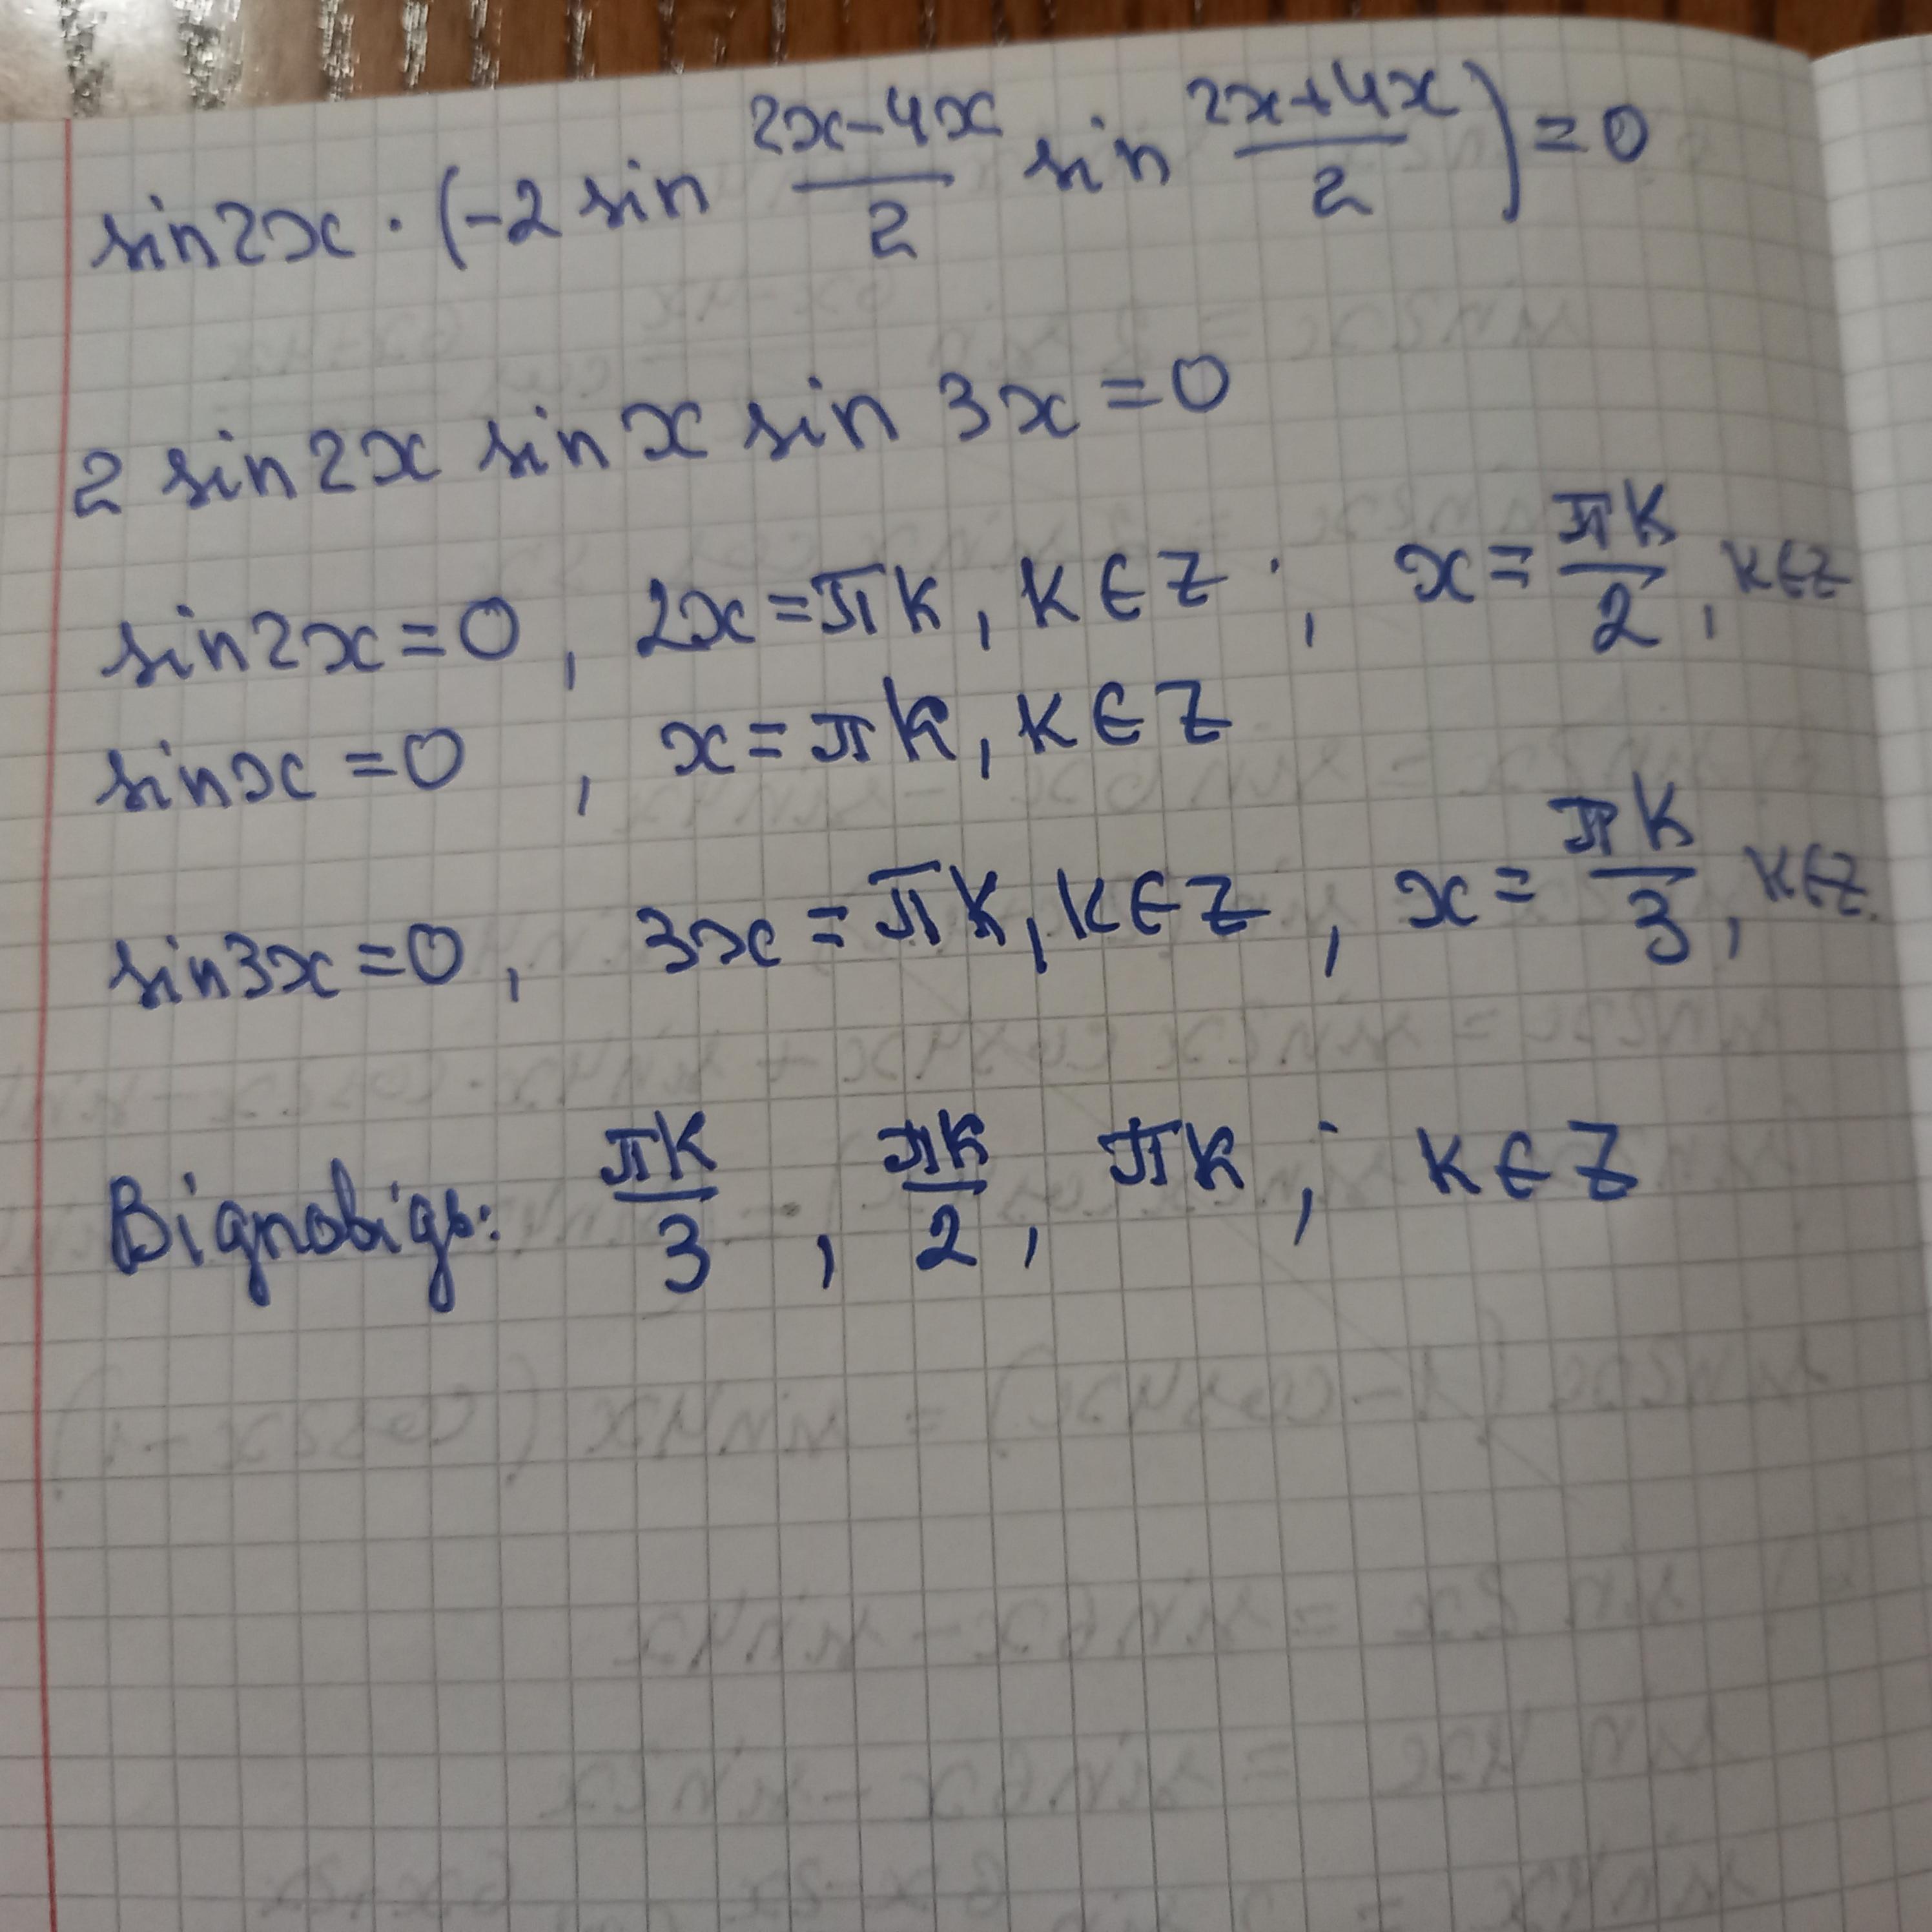 sin2x · (-2 sin (2x-4x)/2 sin (2x+4x)/2) = 0
2 sin2x sin x sin 3x = 0
sin2x = 0, 2x = πk, k ∈ Z; x = πk/2, k∈Z
sinx = 0, x = πk, k ∈ Z
sin3x = 0, 3x = πk, k ∈ Z, x = πk/3, k∈Z
Відповідь: πk/3, πk/2, πk; k ∈ Z